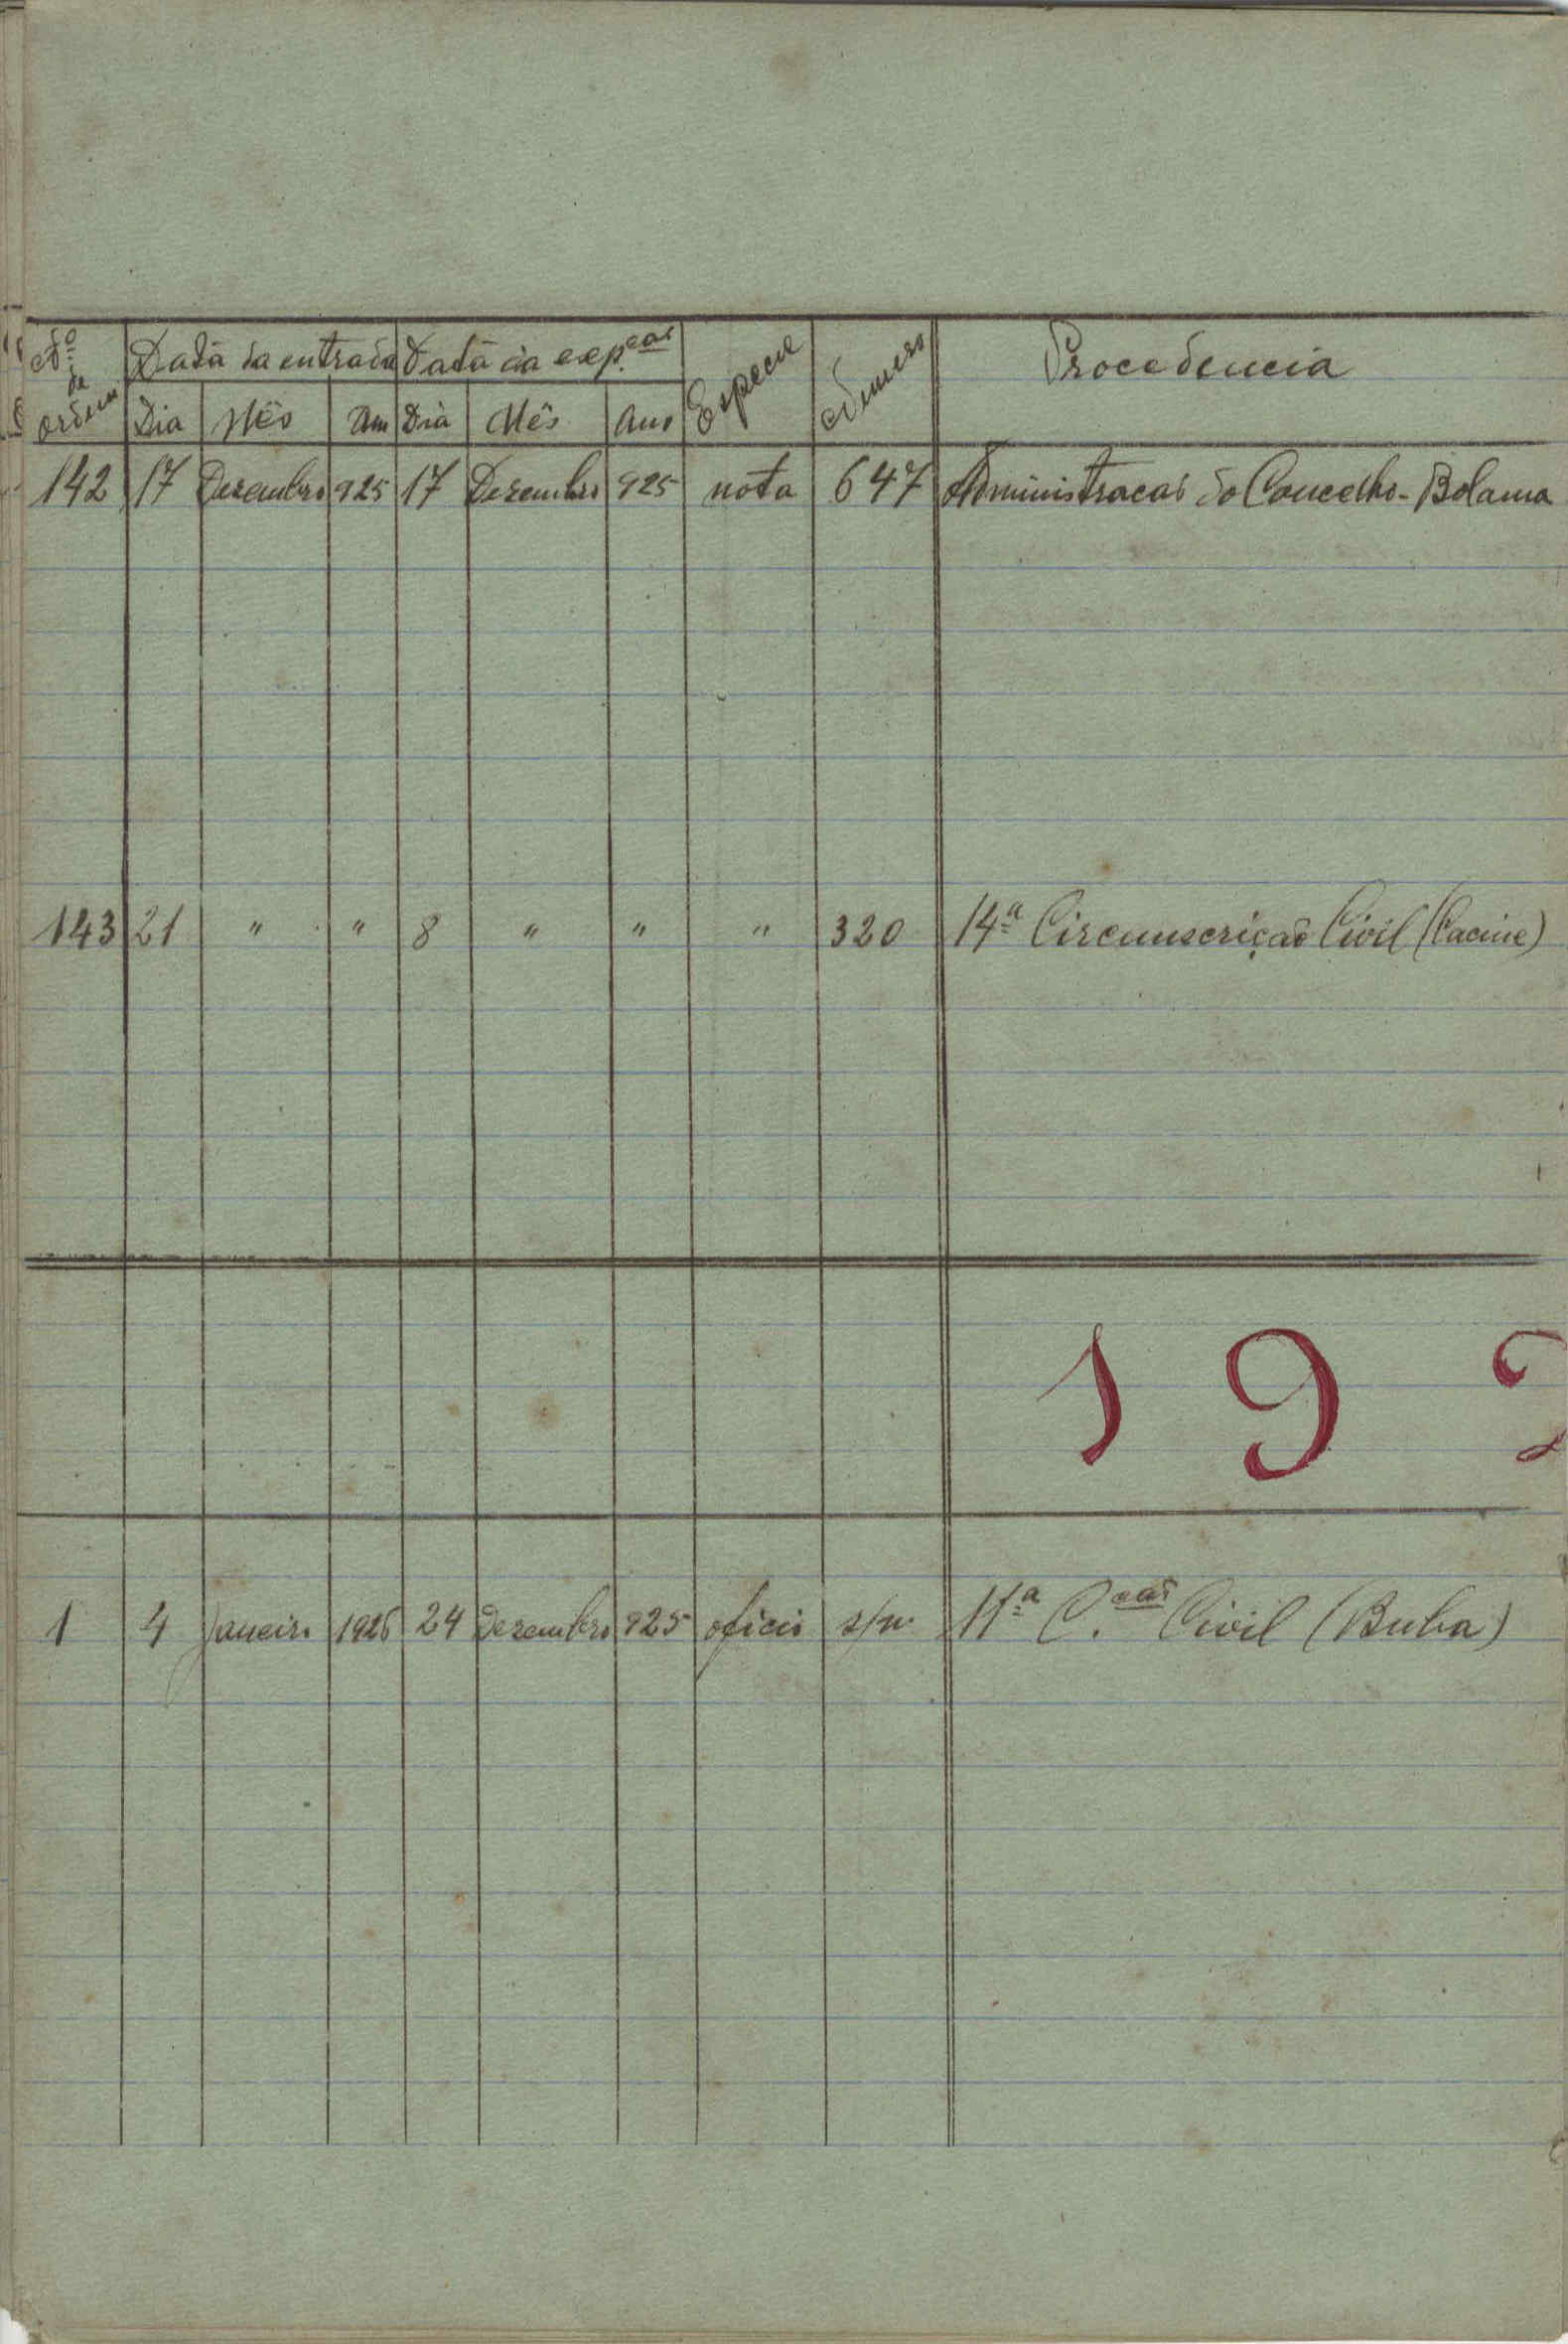 Nº de ordem | Data da entrada | Data da exp.ção | Especie | Numero | Procedencia
Dia | Mês | Ano | Dia | Mês | Ano
142 | 17 | Dezembro | 925 | 17 | Dezembro | 925 | nota | 647 | Administracão do Concelho - Bolama
143 | 21 | " | " | 8 | " | " | " | 320 | 14ª Circunscrição Civil (Cacine)
1 9 2
1 | 4 | Janeiro | 1926 | 24 | Dezembro | 925 | oficio | s/n | 11ª C.cão Civil (Buba)